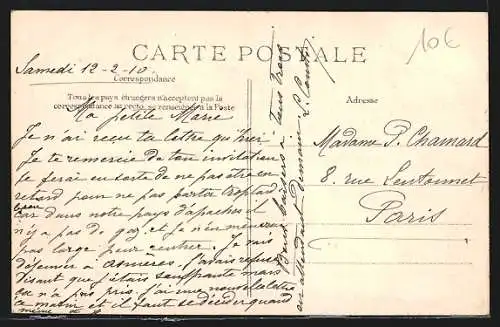 10€
CARTE POSTALE
Samedi 12-2-10.
Correspondance
Tous les pays étrangers n'acceptent pas la
correspondance au recto, se renseigner à la Poste
Ma petite Marie
Je n'ai reçu ta lettre qu'hier
Je te remercie de ton invitation
je ferai en sorte de ne pas être en
retard pour ne pas partir trop tard
car dans notre pays d'apaches il
n'y a pas de gaz, et je n'en mènerai
pas large pour rentrer. Je vais
déjeuner à Asnières. J'avais refusé
disant que j'étais souffrante mais
ça n'a pas pris. j'ai une nouvelle lettre
ce matin et il faut se décider quand
même
Bons baisers à tous trois
en attendant dimanche
Adresse
Madame P. Chamard
8 rue Lentonnet
Paris